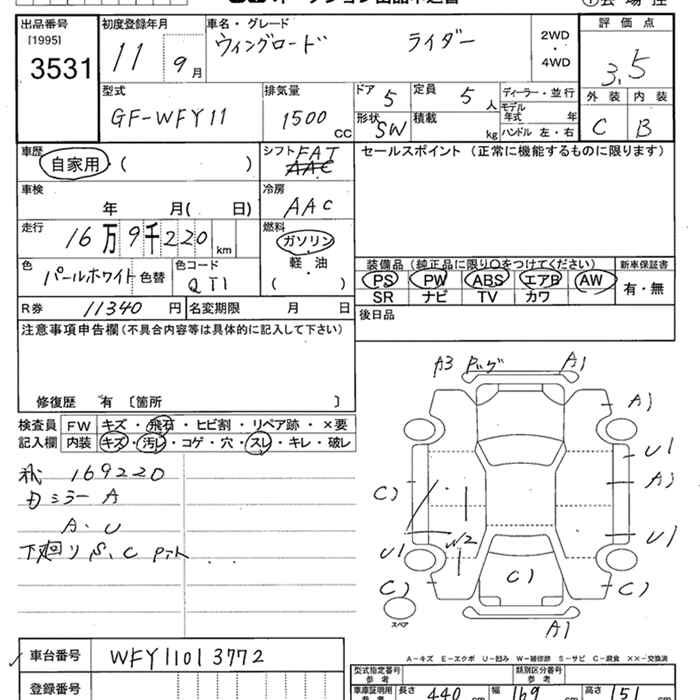 出品番号
[1995]
3531
初度登録年月
11 9月
車名・グレード
ウィングロード ライダー
2WD
・
4WD
評価点
3.5
外装 内装
C B
型式
GF-WFY11
排気量
1500 CC
ドア 5
形状 SW
定員 5人
積載 kg
ディーラー・並行
モデル年式 年
ハンドル 左・右
車歴
自家用・( )
シフト FAT
AAC
冷房
AAC
車検
年 月( 日)
走行
16万9千220 km
燃料
ガソリン
軽・油
( )
色
パールホワイト 色替
色コード
QT1
R券 11340円
名変期限 月 日
セールスポイント (正常に機能するものに限ります)
装備品(純正品に限り○をつけてください)
PS PW ABS エアB AW
SR ナビ TV カワ
新車保証書
有・無
後日品
注意事項申告欄(不具合内容等は具体的に記入して下さい)
修復歴 有 〔箇所 〕
検査員
記入欄
FW キズ・飛石・ヒビ割・リペア跡・×要
内装 キズ・汚レ・コゲ・穴・スレ・キレ・破レ
169220
ミラー A
A・U
下廻り S、C
A3 A1
A1
U1
A1
U1
C1
C1
U1
W2
C1
C1
A1
スペア
A-キズ E-エクボ U-凹み W-補修跡 S-サビ C-腐食 ××-交換済
車台番号 WFY11013772
登録番号
型式指定番号
参考
類別区分番号
参考
車庫証明用
参考
長さ 440 cm
幅 169 cm
高さ 151 cm